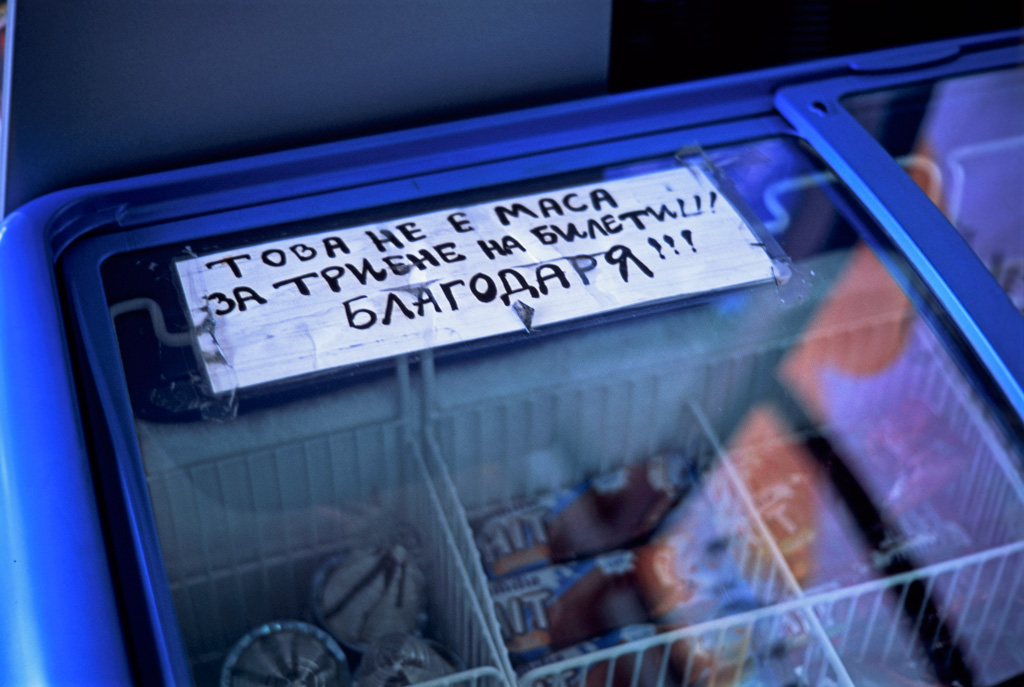 ТОВА НЕ Е МАСА
ЗА ТРИЕНЕ НА БИЛЕТИ!!!
БЛАГОДАРЯ!!!